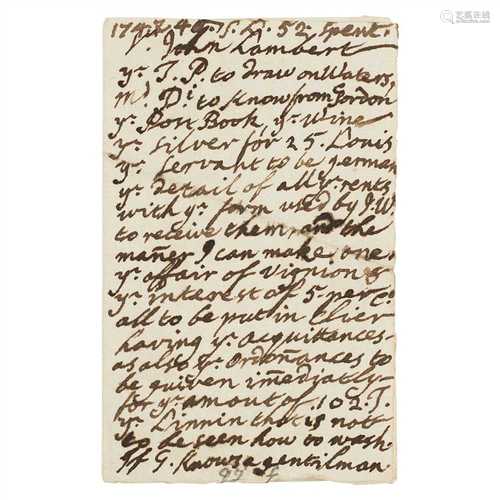 174 S. L. 52 Spent.
J. John Lambert
yͤ J. P. to draw on Waters,
Mͬ Dͥ to know from Gordon
yͤ Post Book, yͤ Wine
yͤ silver for 25 Louis
yͤ servant to be german
yͤ detail of all yͤ rents
with yͤ form used by J. W.
to receive them and the
mañer I can make one
yͤ affair of
yͤ interest of 5 perct
all to be put in Clier
having yͤ acquittances
as also yͤ Ordonñances to
be guiven im̃ediatly
for yͤ amount of 102 J.
yͤ Linnin that is not
to be seen how to wash
If G. Knows a gentilman